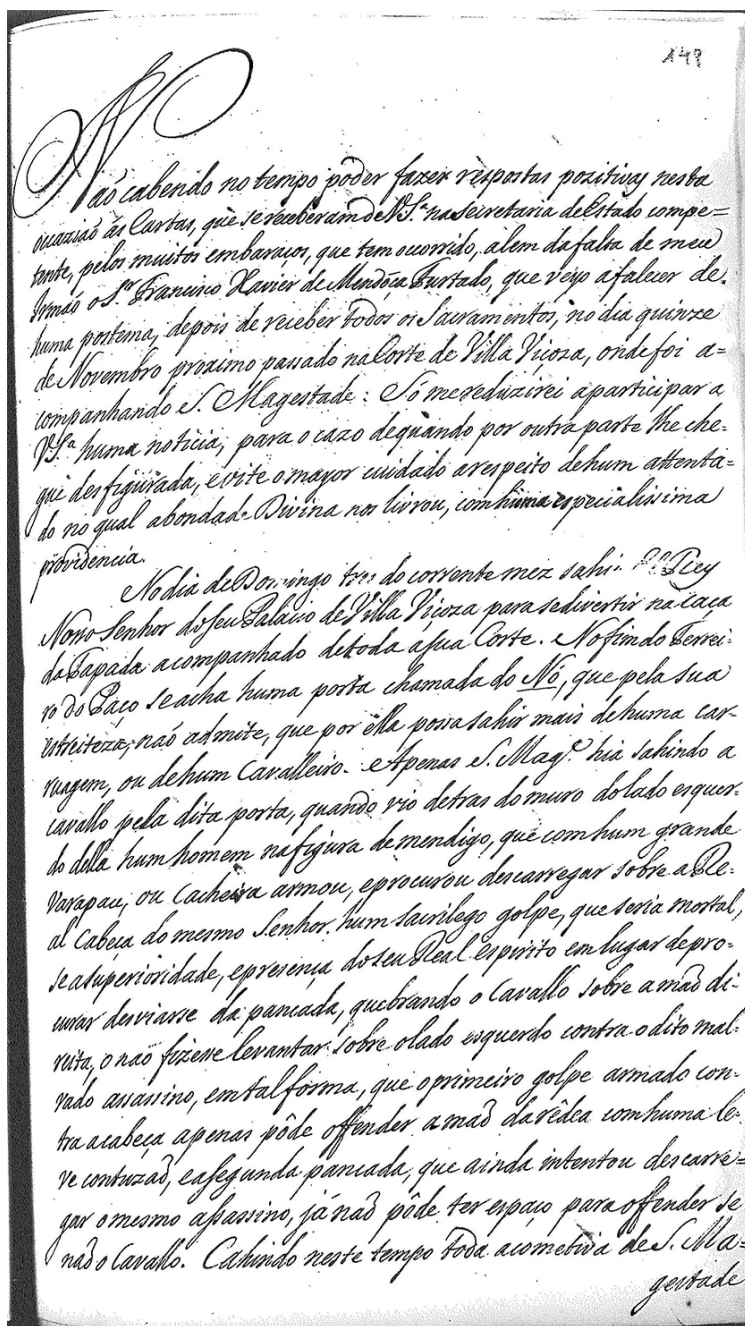 149
Naõ cabendo no tempo pôder fazer respostas pozitivas nesta
occaziaõ ás Cartas, que se receberam de V.S.ª na Secretaria de Estado compe=
tente, pelos muitos embaraços, que tem ocorrido, alem da falta de meu
Irmaõ o S.ʳ Francisco Xavier de Mendóça Furtado, que veyo a falecer de
huma postema, depois de receber todos os Sacramentos, no dia quinze
de Novembro proximo passado na Corte de Villa Viçoza, onde foi a=
companhando S. Magestade: Só me reduzirei a participar a
V.S.ª huma noticia, para o cazo de quando por outra parte lhe che=
gue desfigurada, e vite o mayor cuidado a respeito de hum attenta=
do no qual a bondade Divina nos livrou, com huma especialissima
providencia.
No dia de Domingo tres do corrente mez sahi ElRey
Nosso Senhor do seu Palacio de Villa Vicoza para se divertir na caça
da Tapada acompanhado de toda a sua Corte. No fim do Terrei-
ro do Paço se acha huma porta chamada do Nó, que pela sua
estreiteza, naõ admite, que por ella possa sahir mais de huma car-
ruagem, ou de hum Cavalleiro. Apenas S. Mag.ᵉ hia sahindo a
cavallo pela dita porta, quando vio detras do muro do lado esquer-
do della hum homem na figura de mendigo, que com hum grande
Varapau, ou Cacheira armou, e procurou descarregar sobre a Re-
al Cabeça do mesmo Senhor hum sacrilego golpe, que seria mortal,
se a superioridade, e presença do seu Real espirito em lugar de pro-
curar desviarse da pancada, quebrando o Cavallo sobre a maõ di-
reita, o naõ fizesse levantar sobre o lado esquerdo contra o dito mal-
vado assassino, em tal fórma, que o primeiro golpe armado con-
tra a cabeça apenas pôde offender a maõ da rêdea com huma le-
ve contuzaõ, e a segunda pancada, que ainda intentou descarre=
gar o mesmo assassino, já naõ pôde ter espaço para offender se
naõ o Cavallo. Cahindo neste tempo toda a cometiva de S. Ma=
gestade